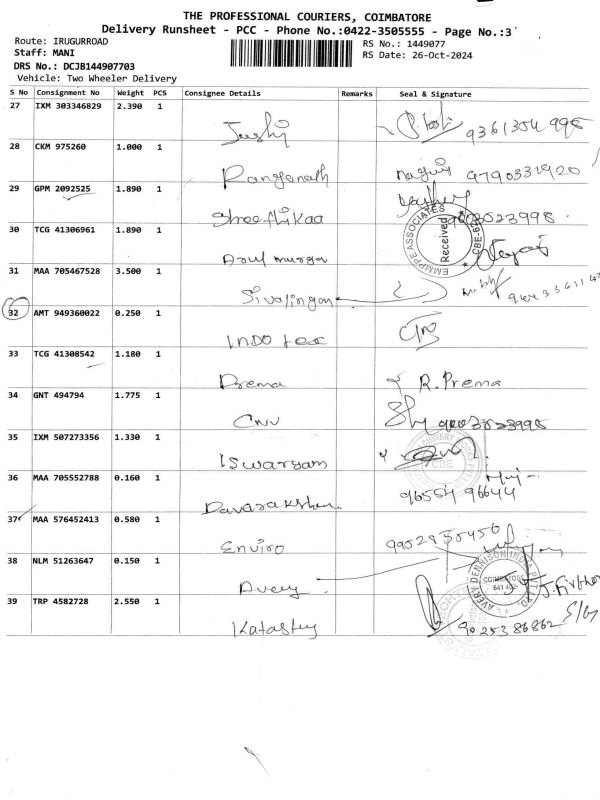 THE PROFESSIONAL COURIERS, COIMBATORE
Delivery Runsheet - PCC - Phone No.:0422-3505555 - Page No.:3
Route: IRUGURROAD
RS No.: 1449077
Staff: MANI
RS Date: 26-Oct-2024
DRS No.: DCJB144907703
Vehicle: Two Wheeler Delivery
S No Consignment No Weight PCS Consignee Details Remarks Seal & Signature
27 IXM 303346829 2.390 1
28 CKM 975260 1.000 1
Ranganath 9790331920
29 GPM 2092525 1.890 1
Shreethikaa
30 TCG 41306961 1.890 1
EMMPPE ASSOCIATES Received
31 MAA 705467528 3.500 1
Sivalingam
32 AMT 949360022 0.250 1
INDO tex
33 TCG 41308542 1.180 1
Prema R. Prema
34 GNT 494794 1.775 1
CNN
35 IXM 507273356 1.330 1
Iswaryam
36 MAA 705552788 0.160 1
96554 96644
37 MAA 576452413 0.580 1
Enviro
38 NLM 51263647 0.150 1
Avery
AVERY DENNISON COIMBATORE
39 TRP 4582728 2.550 1
9025386862